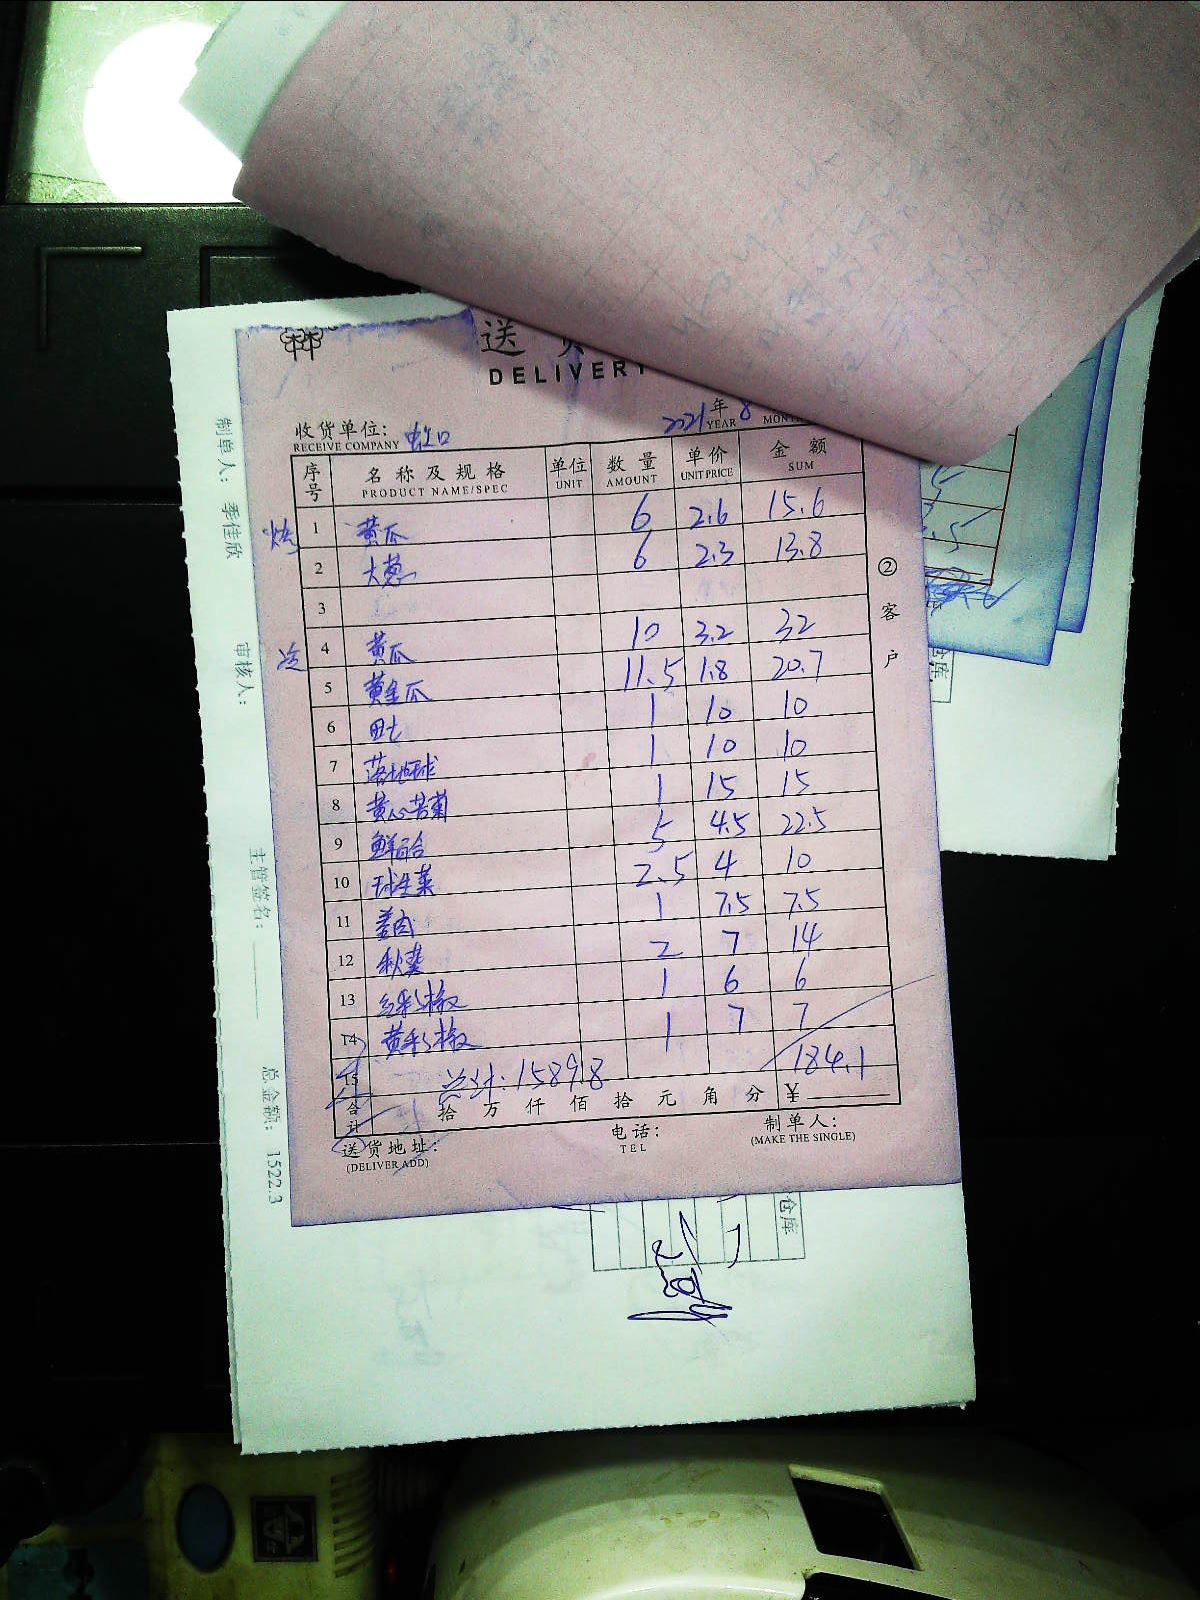 送 货
DELIVERY
收货单位: 虹口 2021年 8
RECEIVE COMPANY YEAR MONTH
序号 名称及规格 单位 数量 单价 金额
PRODUCT NAME/SPEC UNIT AMOUNT UNIT PRICE SUM
烤 1 黄瓜 6 2.6 15.6
2 大葱 6 2.3 13.8
3
冷 4 黄瓜 10 3.2 32
5 黄金瓜 11.5 1.8 20.7
6 田七 1 10 10
7 落地球 1 10 10
8 黄心苦菊 1 15 15
9 鲜百合 5 4.5 22.5
10 球生菜 2.5 4 10
11 姜肉 1 7.5 7.5
12 秋葵 2 7 14
13 红彩椒 1 6 6
14 黄彩椒 1 7 7
15 总计:1589.8 184.1
合计 拾 万 仟 佰 拾 元 角 分 ¥
送货地址: 电话: 制单人:
(DELIVER ADD) TEL (MAKE THE SINGLE)
②客户
制单人: 季佳欣
审核人:
主管签名:
总金额: 1522.3
仓库
仓库